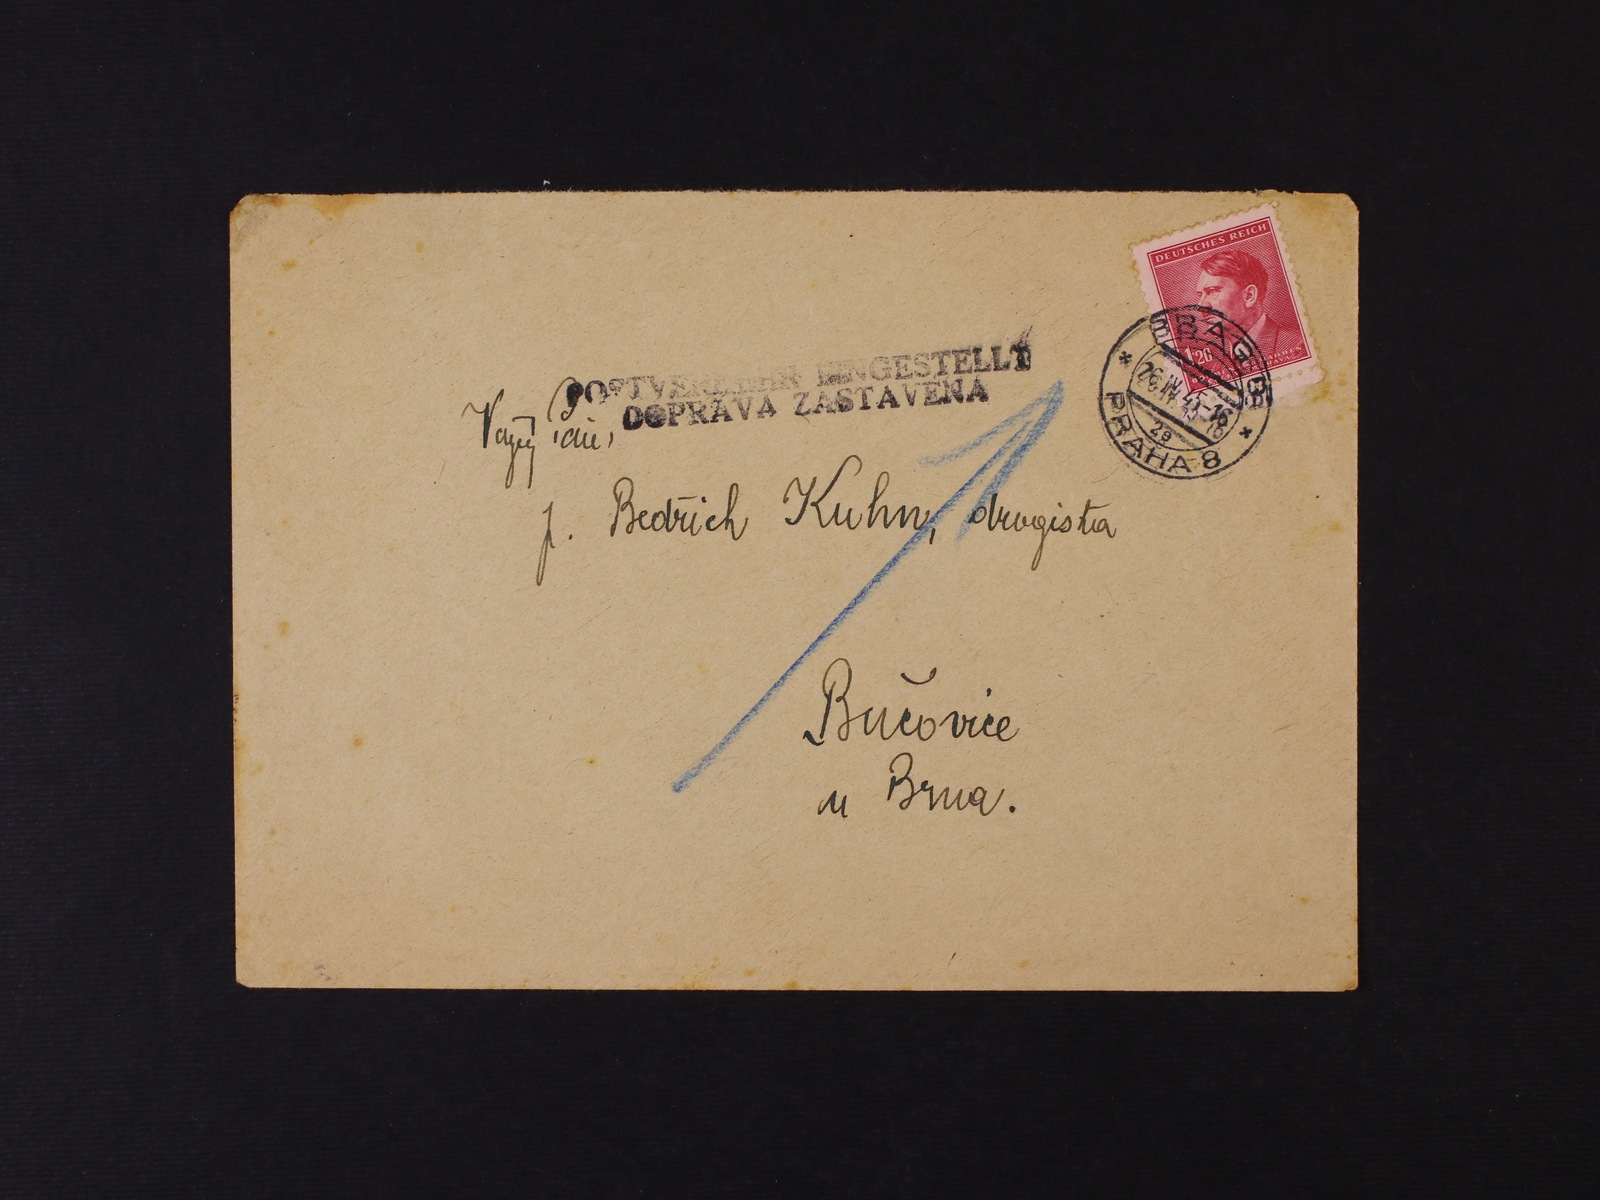 DEUTSCHES REICH
1.20
PRAG 8
26.IV.45-16
2g
PRAHA 8
POSTVERKEHR EINGESTELLT
DOPRAVA ZASTAVENA
Vážený Pán,
p. Bedřich Kuhn, drogista
Bučovice
u Brna.